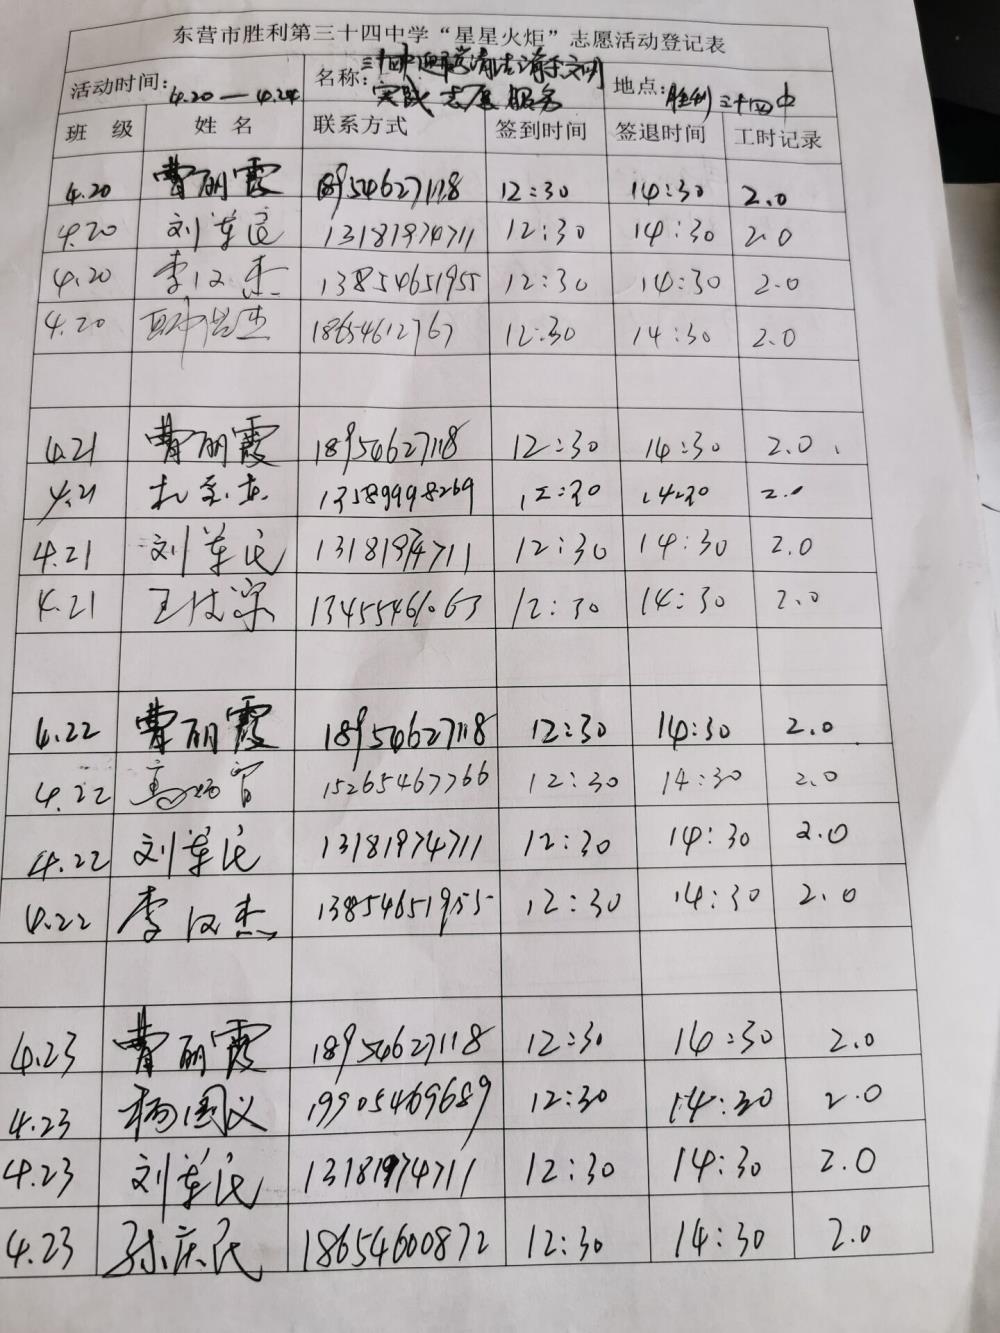 东营市胜利第三十四中学“星星火炬”志愿活动登记表
活动时间: 4.20—4.24 名称: 三十四中 文明 实践志愿服务 地点: 胜利三十四中
班 级 姓 名 联系方式 签到时间 签退时间 工时记录
4.20 曹丽霞 18954627118 12:30 14:30 2.0
4.20 刘军民 13181974711 12:30 14:30 2.0
4.20 李汉杰 13854651955 12:30 14:30 2.0
4.20 1865461276 12:30 14:30 2.0
4.21 曹丽霞 18954627118 12:30 14:30 2.0
4.21 13589998269 12:30 14:30 2.0
4.21 刘军民 13181974711 12:30 14:30 2.0
4.21 王 13455461063 12:30 14:30 2.0
4.22 曹丽霞 18954627118 12:30 14:30 2.0
4.22 高 15265467766 12:30 14:30 2.0
4.22 刘军民 13181974711 12:30 14:30 2.0
4.22 李汉杰 13854651955 12:30 14:30 2.0
4.23 曹丽霞 18954627118 12:30 14:30 2.0
4.23 杨国义 19905469689 12:30 14:30 2.0
4.23 刘军民 13181974711 12:30 14:30 2.0
4.23 孙庆民 18654600872 12:30 14:30 2.0